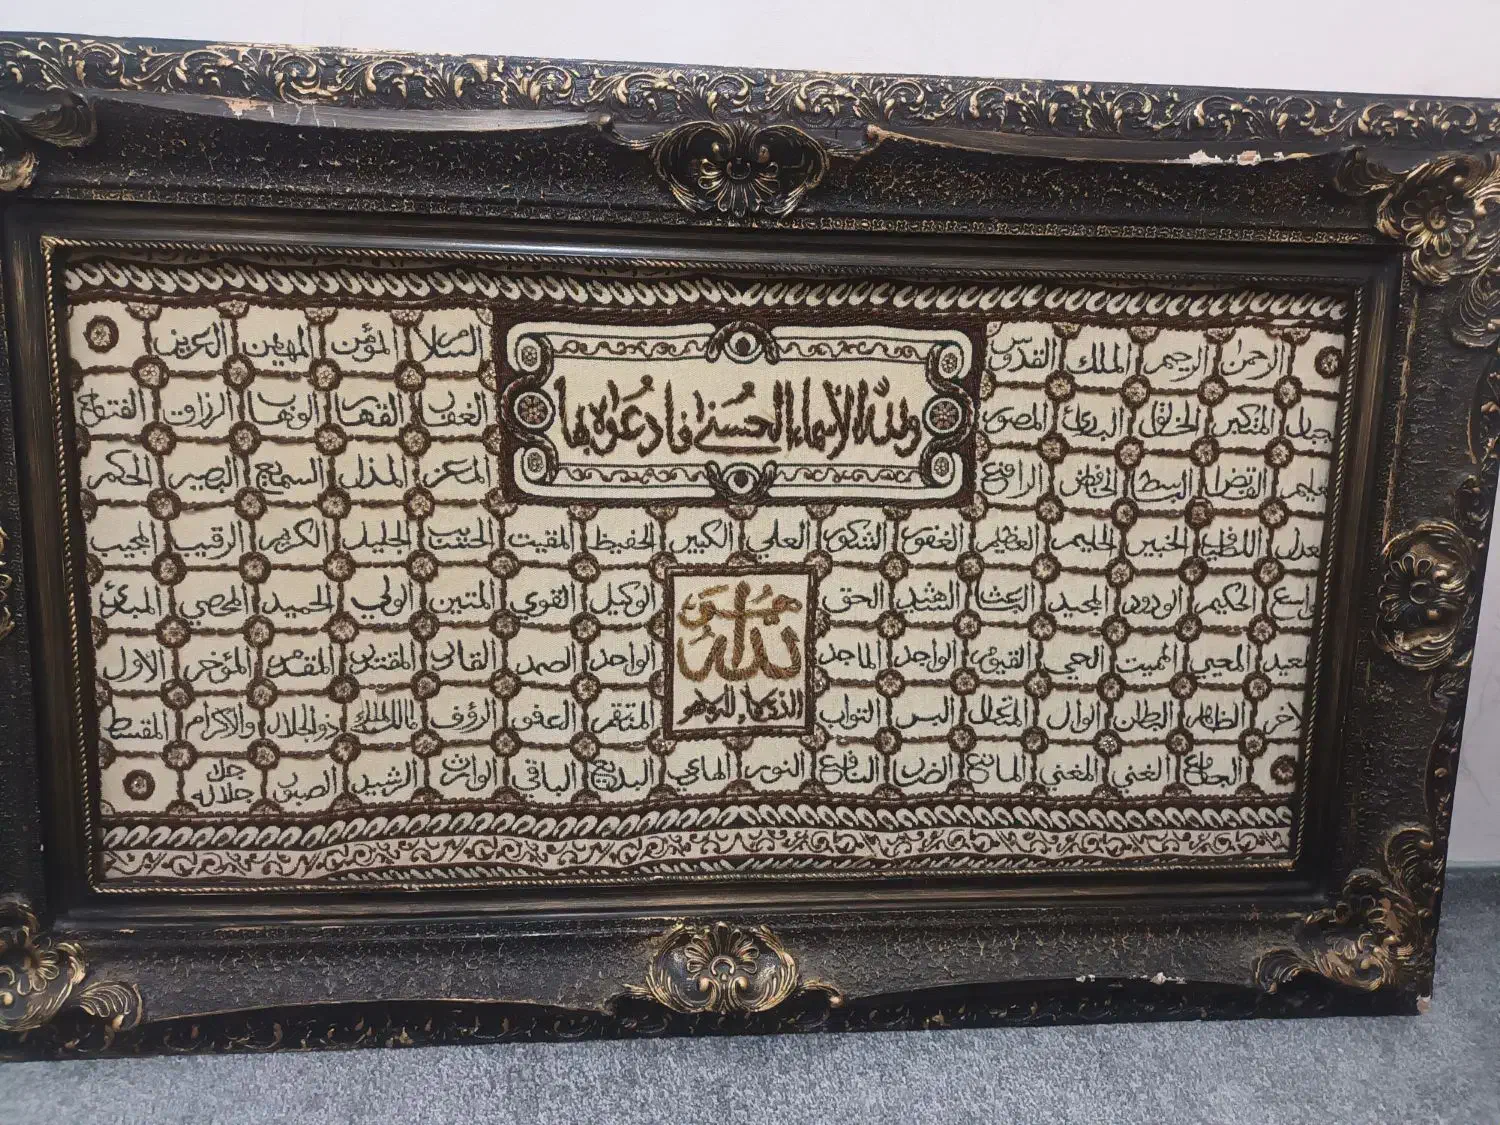 ولله الاسماء الحسنى فادعوه بها
الرحمن الرحيم الملك القدوس السلام المؤمن المهيمن العزيز
المتكبر الخالق المصور القهار الوهاب الرزاق الفتاح
القابض الباسط الخافض الرافع المعز المذل السميع البصير الحكم
اللطيف الخبير الحليم العظيم الغفور الشكور العلي الكبير الحفيظ المقيت الحسيب الجليل الكريم الرقيب المجيب
الحكيم الودود المجيد الحق الوكيل القوي المتين الولي الحميد المحصي المبدئ
هو الله
المحيي المميت الحي القيوم الواجد الماجد الواحد الصمد القادر المقتدر المقدم المؤخر الاول
الظاهر الباطن الوالي التواب المنتقم العفو الرؤف مالك الملك ذو الجلال والاكرام المقسط
الذي لا إله إلا هو
الجامع الغني المغني المانع الضار النافع النور الهادي البديع الباقي الوارث الرشيد الصبور جل جلاله